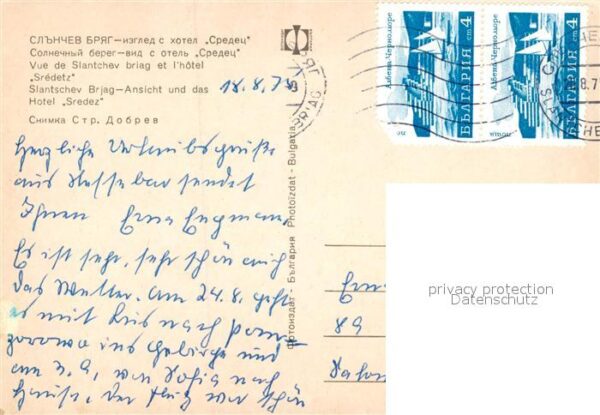 СЛЪНЧЕВ БРЯГ—изглед с хотел „Средец"
Солнечный берег—вид с отель „Средец"
Vue de Slantchev briag et l'hôtel
„Srédetz"
Slantschev Brjag—Ansicht und das
Hotel „Sredez"
Снимка Стр. Добрев
18.8.78
Herzliche Urlaubsgrüße
aus Nessebar sendet
Ihnen Erna
Es ist sehr, sehr schön auch
das Wetter. Am 24.8. geht
es mit Bus nach
ins Gebirge und
am 3.9. von Sofia nach
Hause. Der Flug war schön
Фотоиздат - България Photoizdat - Bulgaria
Албена Черноморие
поща
БЪЛГАРИЯ
ст 4
Албена Черноморие
поща
БЪЛГАРИЯ
ст 4
privacy protection
Datenschutz
89